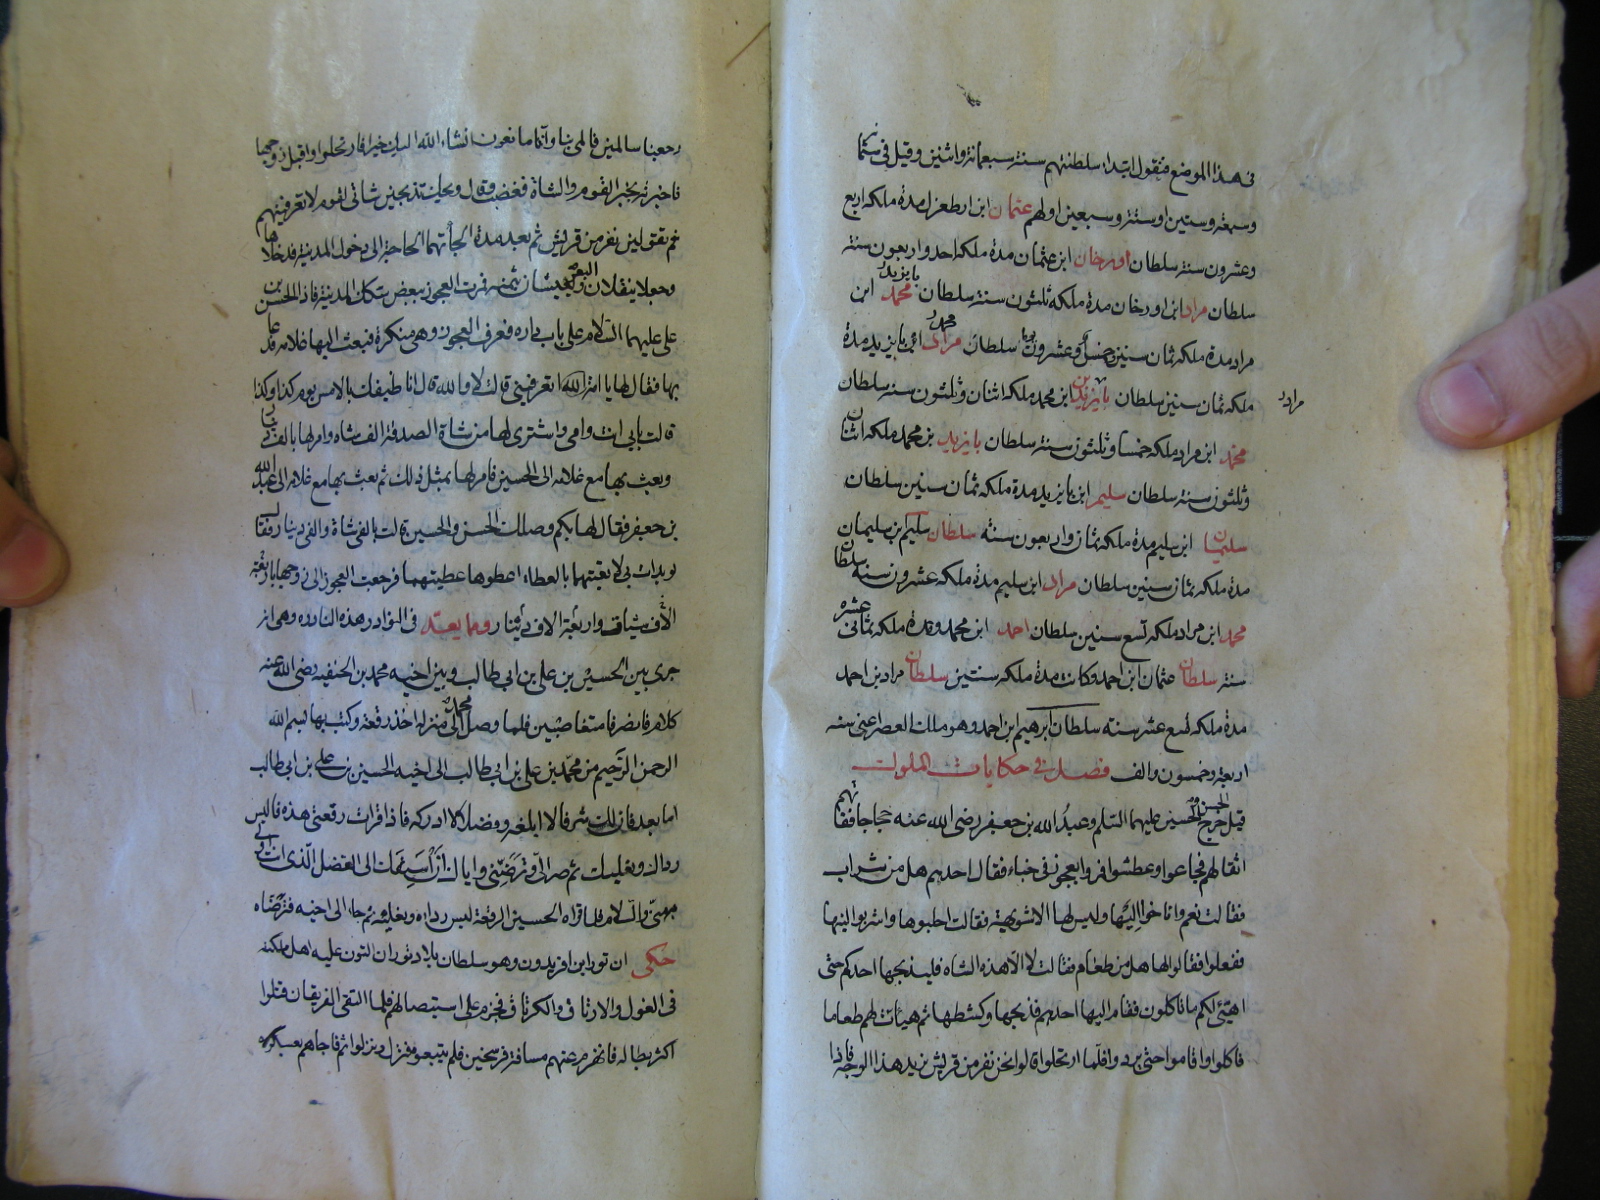 فى هذا الموضع فنقول ابتداء سلطنتهم سنة سبعمائة واثنين وقيل فى
وسبعة وستين او ستة وسبعين اولهم عثمان ابن ارطغرل مدة ملكه اربع
وعشرون سنة سلطان اورخان ابن عثمان مدة ملكه احد واربعون سنة
سلطان مراد ابن اورخان مدة ملكه ثلثون سنة سلطان محمد بايزيد ابن
مراد مدة ملكه ثمان سنين وعشرون سلطان مراد محمد ابن بايزيد مدة
ملكه ثمان سنين سلطان بايزيد ابن محمد ملكه اثنان وثلثون سنة سلطان
مراد
محمد ابن مراد ملكه خمسا وثلثون سنة سلطان بايزيد بن محمد ملكه اثنان
وثلثون سنة سلطان سليم ابن بايزيد مدة ملكه ثمان سنين سلطان
سليمان ابن سليم مدة ملكه ثمان واربعون سنة سلطان سليم بن سليمان
مدة ملكه ثمان سنين سلطان مراد ابن سليم مدة ملكه عشرون سنة سلطان
محمد ابن مراد ملكه تسع سنين سلطان احمد ابن محمد ومدة ملكه ثمانى عشره
سنة سلطان عثمان ابن احمد وكانت مدة ملكه سنتين سلطان مراد بن احمد
مدة ملكه عشر سنة سلطان ابرهيم ابن احمد وهو ملك العصر اعنى سنه
اربعة وخمسون والف فصل فى حكايات الملوك
قيل خرج الحسن والحسين عليهما السلم وعبد الله بن جعفر رضى الله عنه حجاجا ففاتهم
اثقالهم فجاعوا وعطشوا فروا بعجوز فى خباء فقال احدهم هل من شراب
فقالت نعم واناخوا اليها وليس لها الا شويهة فقالت احلبوها واشربوا لبنها
ففعلوا فقالوا لها هل من طعام فقالت لا الا هذه الشاة فليذبحها احدكم حتى
اهيئ لكم ما تاكلون فقام اليها احدهم فذبحها وكشطها ثم هيأت لهم طعاما
فاكلوا واقاموا حتى بردوا فلما ارتحلوا قالوا نحن نفر من قريش نريد هذا الوجه فاذا
رجعنا سالمين فالمى بنا وانا صانعون انشاء الله اليك خيرا فارتحلوا واقبل زوجها
فاخبرته بخبر القوم والشاة فغضب وقال ويحك تذبحين شاتى لقوم لا تعرفينهم
ثم تقولين نفر من قريش ثم بعد مدة الجأتهما الحاجة الى دخول المدينة فدخلاها
وجعلا ينقلان البعر ويعيشان بثمنه فمرت العجوز ببعض سكك المدينة فاذا الحسن بن
على عليهما السلام على باب داره فعرف العجوز وهى منكرة فبعث اليها غلامه فدعا
بها فقال لها يا امة الله اتعرفينى قالت لا والله قال انا ضيفك بالامس يوم كذا وكذا
قالت بابى انت وامى واشترى لها من شاة الصدقة الف شاه وامر لها بالف دينار
وبعث بها مع غلامه الى الحسين فامر لها بمثل ذلك ثم بعث بها مع غلامه الى عبد الله
بن جعفر فقال لها بكم وصلك الحسن والحسين قالت بالفى شاة والفى دينار فقال
لو بدات بى لا تعبتهما بالعطاء اعطوها عطيتهما فرجعت العجوز الى زوجها باربعة
الآف شياة واربعة الاف دينار ومما يعد فى النوادر هذه النادره وهى انه
جرى بين الحسين بن على بن ابى طالب وبين اخيه محمد بن الحنفيه رضى الله عنه
كلام فانصرفا متغاضبين فلما وصل محمد الى منزله اخذ رقعة وكتب بها بسم الله
الرحمن الرحيم من محمد بن على بن ابى طالب الى اخيه الحسين بن على بن ابى طالب
اما بعد فان لك شرفا لا ابلغه وفضلا لا ادركه فاذا قرات رقعتى هذه فالبس
رداك ونعليك ثم صر الى وترضينى واياك ان اسبقك الى الفضل الذى انت اولى
به منى والسلام فلما قراه الحسين الرقعة لبس رداءه ونعليه ثم جاء الى اخيه فترضاه
حكى ان تور ابن افريدون وهو سلطان بلاد توران التون عليه اهل ملكته
فى الغول والارتاق والكرتاق فجزم على استيصالهم فلما التقى الفريقان قتلوا
اكثر بطاله فانهزم عنهم مسافة فرسخين فلم يتبعوه فنزل ونزلوا ثم فاجاهم بعسكره